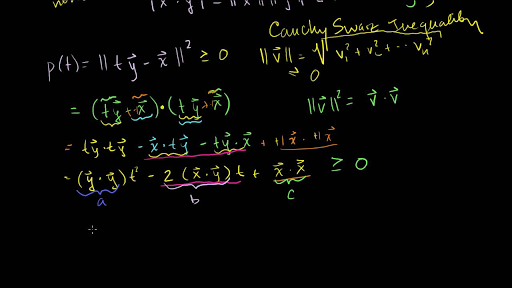 Cauchy Swarz Inequality
p(t) = ‖ t y⃗ − x⃗ ‖² ≥ 0
‖v⃗‖ = √ v₁² + v₂² + ⋯ vₙ²
≥ 0
= (t y⃗ + x⃗) · (t y⃗ + x⃗)
‖v⃗‖² = v⃗ · v⃗
= t y⃗ · t y⃗ − x⃗ · t y⃗ − t y⃗ · x⃗ + +1 x⃗ · +1 x⃗
= (y⃗ · y⃗) t² − 2 (x⃗ · y⃗) t + x⃗ · x⃗ ≥ 0
a b c